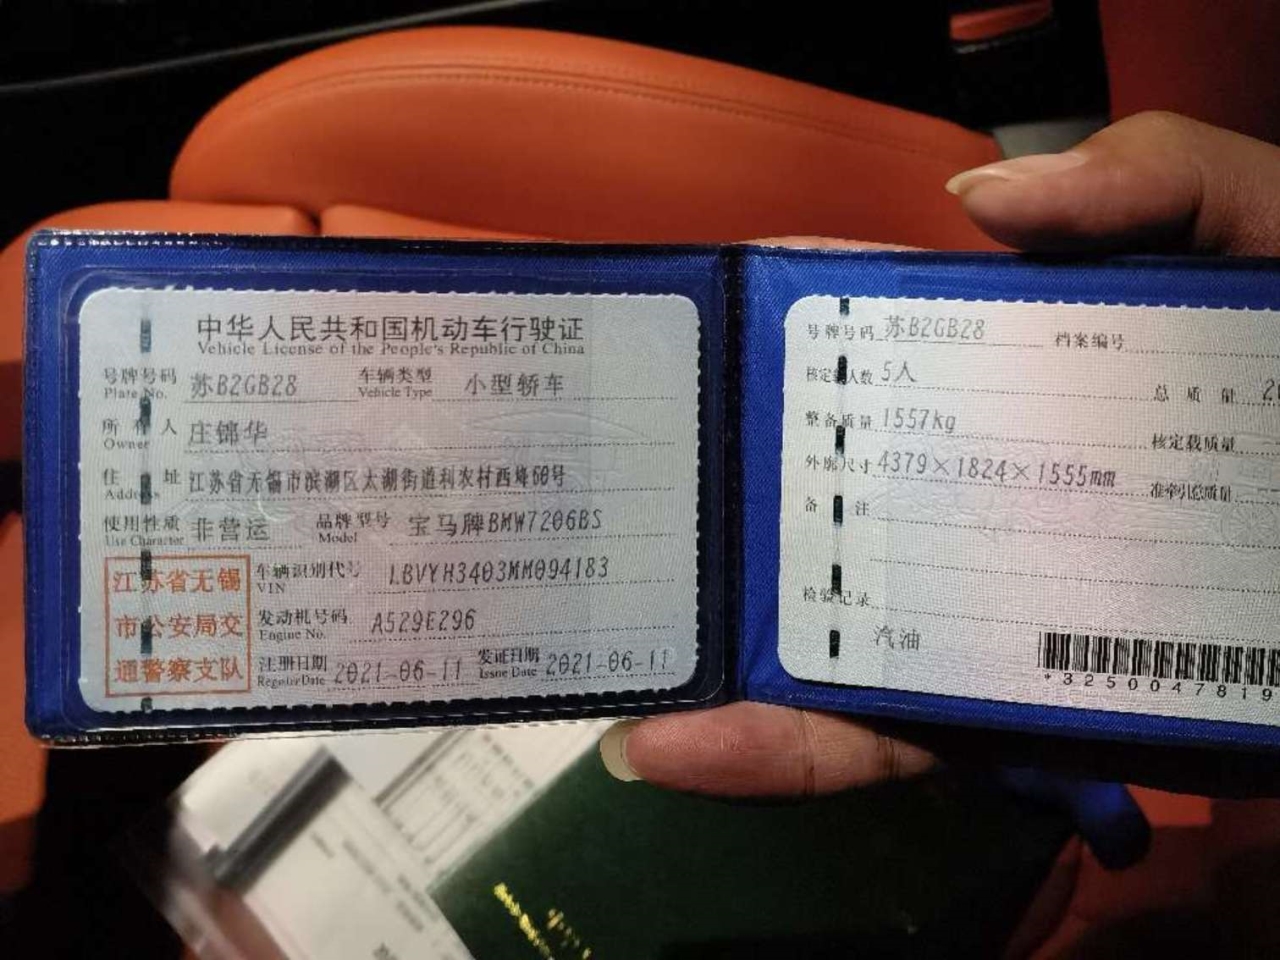 中华人民共和国机动车行驶证
Vehicle License of the People's Republic of China
号牌号码 苏B2GB28 车辆类型 小型轿车
Plate No. Vehicle Type
所有人 庄锦华
Owner
住址 江苏省无锡市滨湖区太湖街道利农村西烽60号
Address
使用性质 非营运 品牌型号 宝马牌BMW7206BS
Use Character Model
江苏省无锡
市公安局交
通警察支队
车辆识别代号 LBVYH3403MM094183
VIN
发动机号码 A529E296
Engine No.
注册日期 2021-06-11 发证日期 2021-06-11
Register Date Issue Date
号牌号码 苏B2GB28 档案编号
核定载人数 5人 总质量
整备质量 1557kg 核定载质量
外廓尺寸 4379×1824×1555mm 准牵引总质量
备注
检验记录
汽油
*3250047819